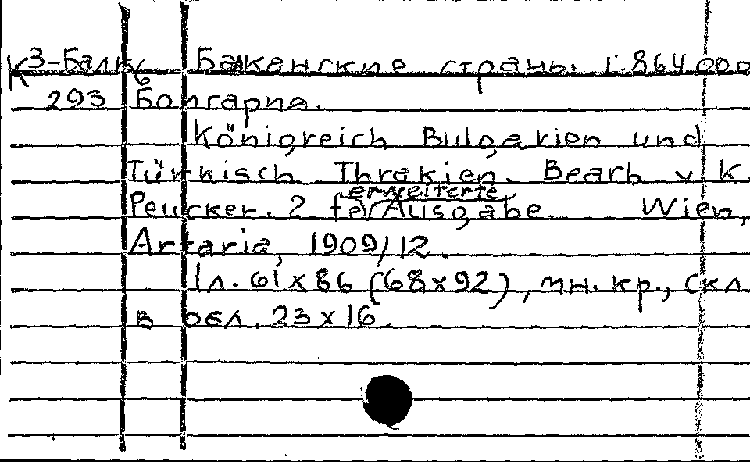 К3-Балк Балканские страны. 1:864 000
293 Болгария.
Königreich Bulgarien und
Türkisch Thrakien. Bearb v K.
erweiterte
Peucker. 2 Ausgabe. Wien,
Artaria, 1909/12.
1л. 61x86 (68x92), мн. кр., скл.
в обл. 23x16.